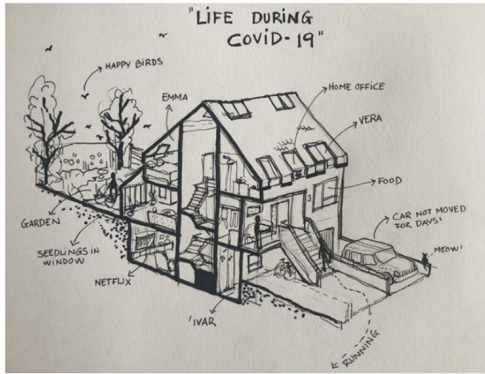 "LIFE DURING
COVID-19"
HAPPY BIRDS
EMMA
HOME OFFICE
VERA
FOOD
CAR NOT MOVED
FOR DAYS!
MEOW!
GARDEN
SEEDLINGS IN
WINDOW
NETFLIX
'IVAR
RUNNING
3